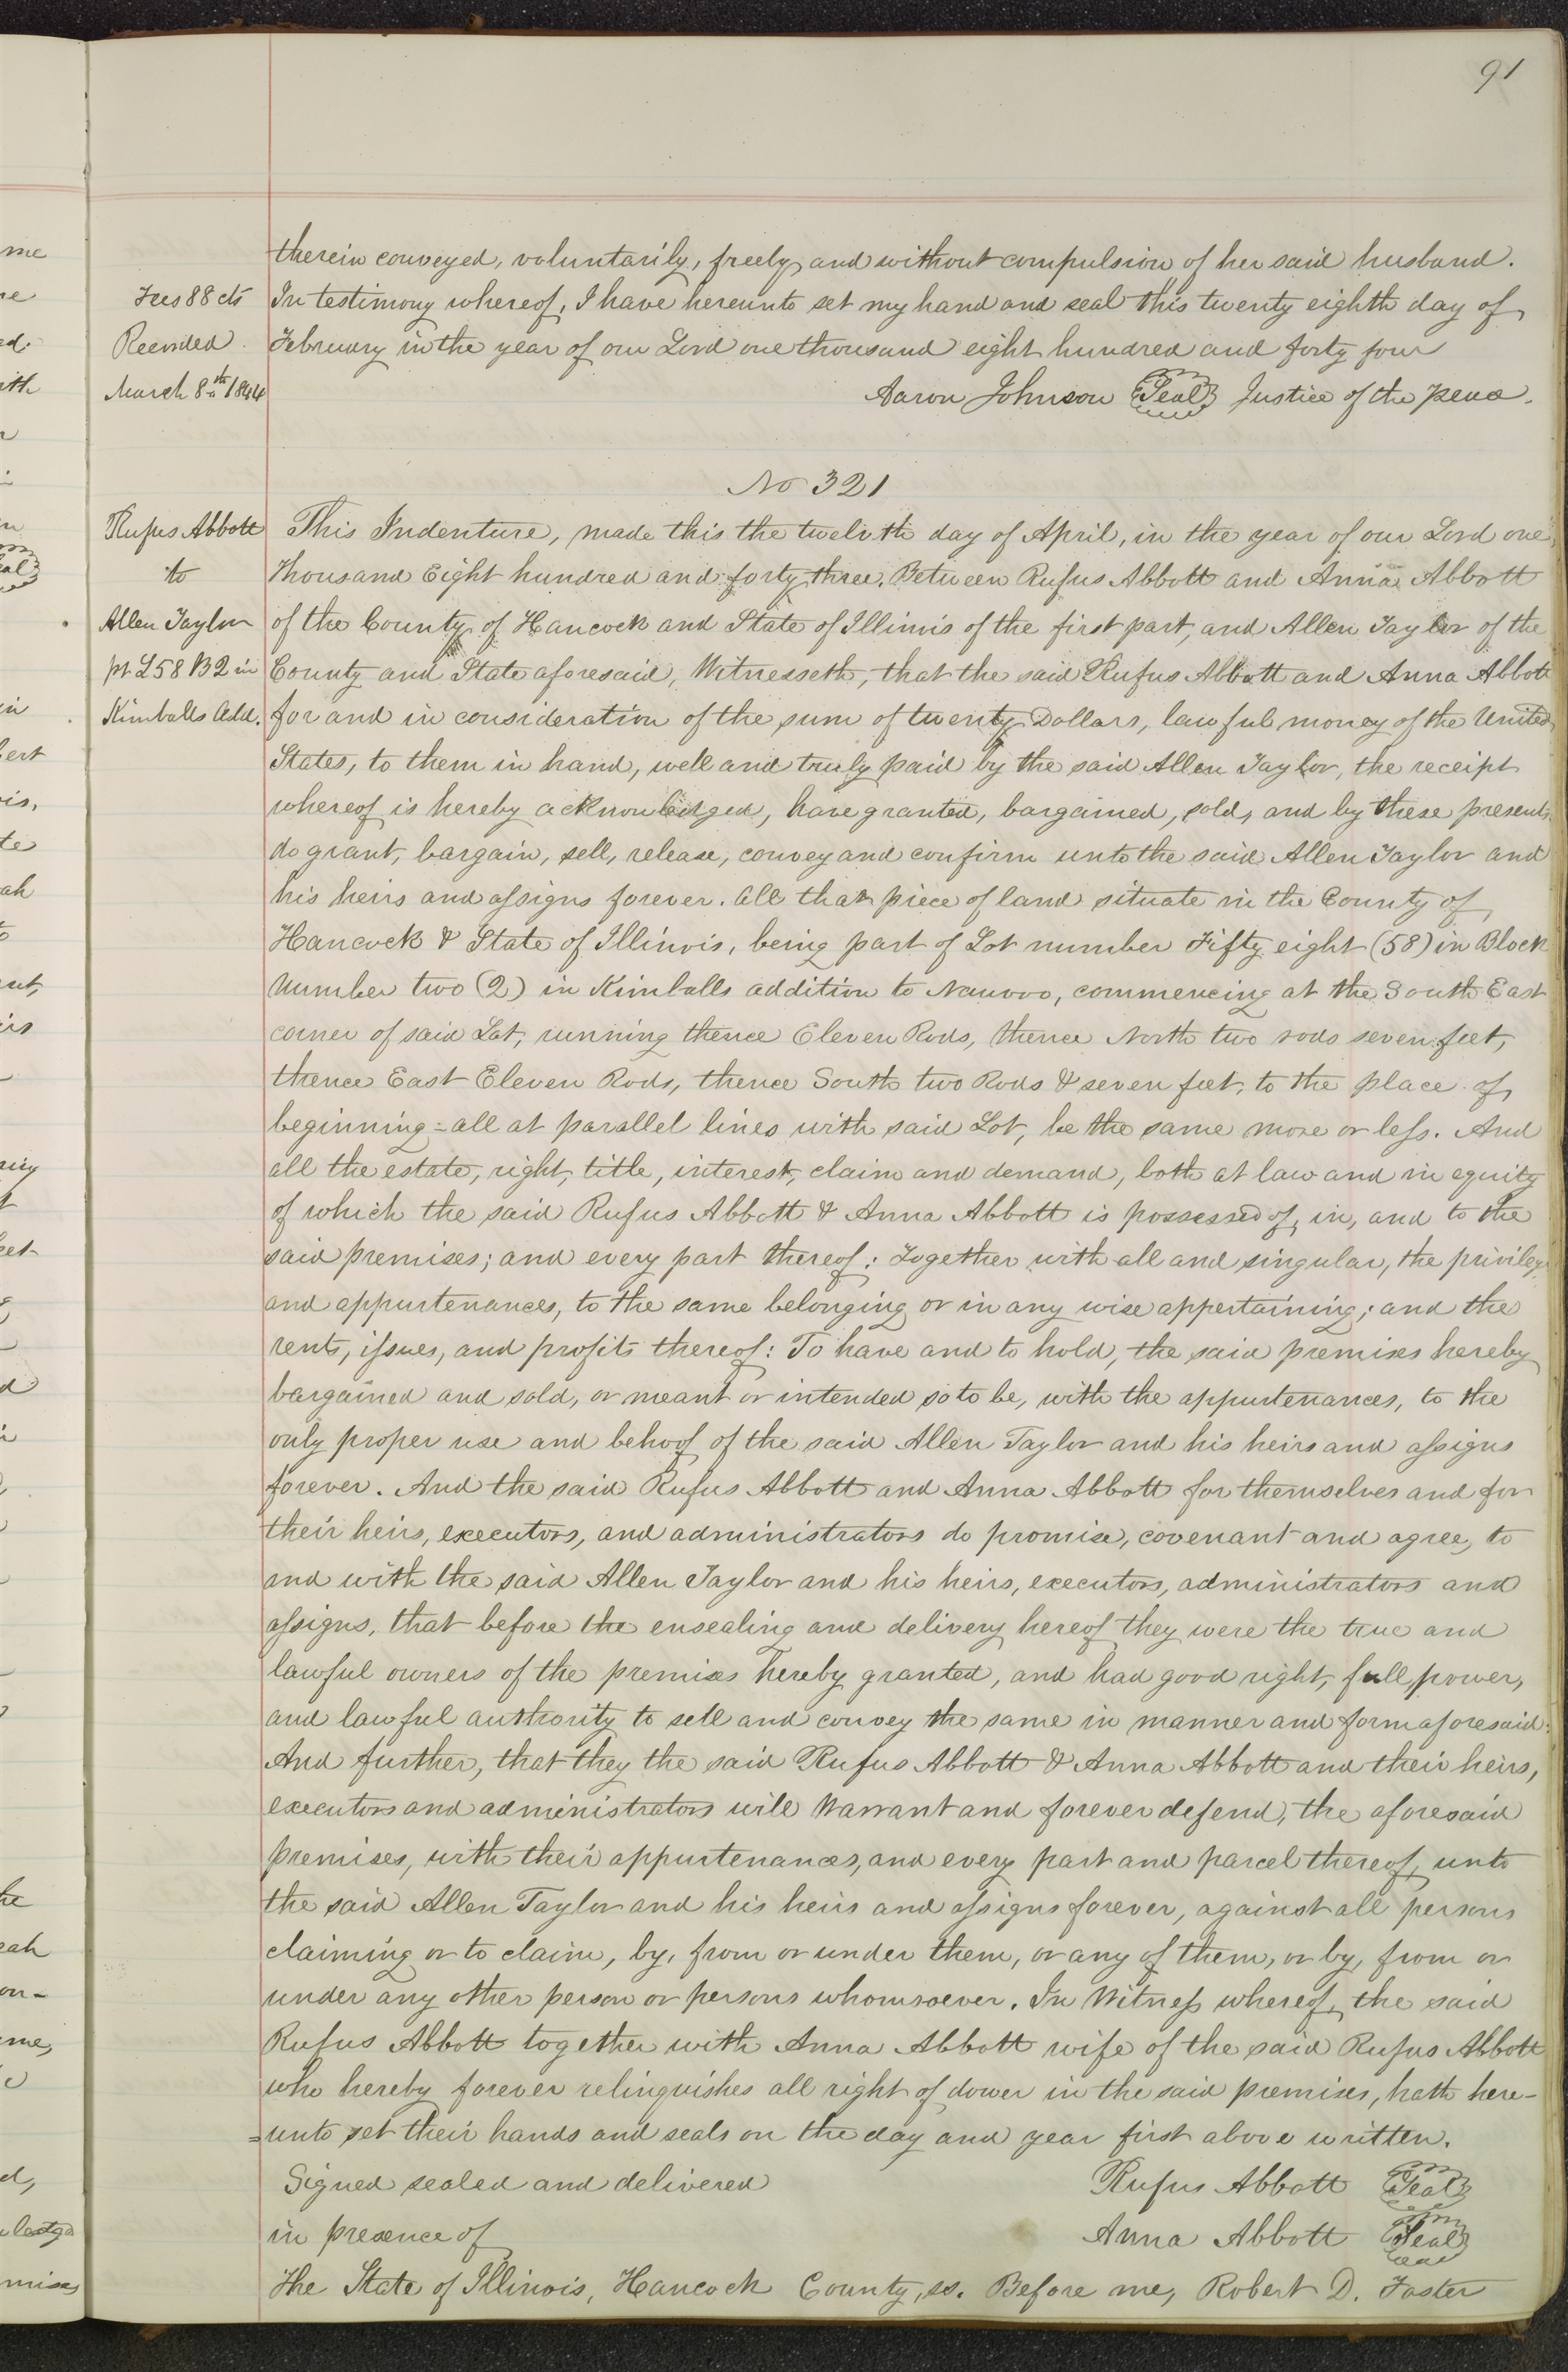 91
therein conveyed, voluntarily, freely and without compulsion of her said husband.
Fees 88 cts In testimony whereof, I have hereunto set my hand and seal this twenty eighth day of
Recorded February in the year of our Lord one thousand eight hundred and forty four
March 8th 1844 Aaron Johnson Seal Justice of the peace.
No 321
Rufus Abbott This Indenture, made this the twelvth day of April, in the year of our Lord one
to Thousand Eight hundred and forty three. Between Rufus Abbott and Anna Abbott
Allen Taylor of the County of Hancock and State of Illinois of the first part, and Allen Taylor of the
pt L58 B2 in County and State aforesaid, Witnesseth, that the said Rufus Abbott and Anna Abbott
Kimballs Add. for and in consideration of the sum of twenty Dollars, lawful money of the United
States, to them in hand, well and truly paid by the said Allen Taylor, the receipt
whereof is hereby acknowledged, have granted, bargained, sold, and by these presents
do grant, bargain, sell, release, convey and confirm unto the said Allen Taylor and
his heirs and assigns forever. All that piece of land situate in the County of
Hancock & State of Illinois, being part of Lot number Fifty eight (58) in Block
Number two (2) in Kimballs addition to Nauvoo, commencing at the South East
corner of said Lot, running thence Eleven Rods, thence North two rods seven feet,
thence East Eleven Rods, thence South two Rods & seven feet, to the place of
beginning = all at parallel lines with said Lot, be the same more or less. And
all the estate, right, title, interest, claim and demand, both at law and in equity
of which the said Rufus Abbott & Anna Abbott is possessed of, in, and to the
said premises; and every part thereof: Together with all and singular, the privileg
and appurtenances, to the same belonging or in any wise appertaining; and the
rents, issues, and profits thereof: To have and to hold, the said premises hereby
bargained and sold, or meant or intended so to be, with the appurtenances, to the
only proper use and behoof of the said Allen Taylor and his heirs and assigns
forever. And the said Rufus Abbott and Anna Abbott for themselves and for
their heirs, executors, and administrators do promise, covenant and agree, to
and with the said Allen Taylor and his heirs, executors, administrators and
assigns, that before the ensealing and delivery hereof they were the true and
lawful owners of the premises hereby granted, and had good right, full power,
and lawful authority to sell and convey the same in manner and form aforesaid:
And further, that they the said Rufus Abbott & Anna Abbott and their heirs,
executors and administrators will Warrant and forever defend, the aforesaid
premises, with their appurtenances, and every part and parcel thereof, unto
the said Allen Taylor and his heirs and assigns forever, against all persons
claiming or to claim, by, from or under them, or any of them, or by, from or
under any other person or persons whomsoever. In Witness whereof, the said
Rufus Abbott together with Anna Abbott wife of the said Rufus Abbott
who hereby forever relinquishes all right of dower in the said premises, hath here-
=unto set their hands and seals on the day and year first above written.
Signed sealed and delivered Rufus Abbott Seal
in presence of Anna Abbott Seal
The State of Illinois, Hancock County, ss. Before me, Robert D. Foster